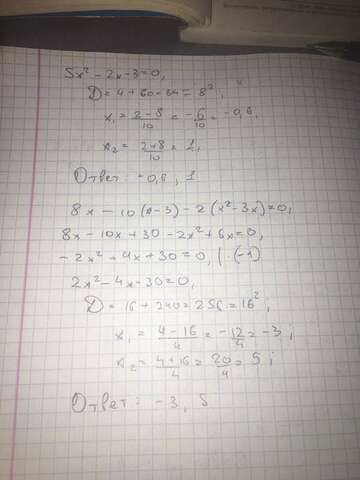 5x² - 2x - 3 = 0,
D = 4 + 60 = 64 = 8²,
x₁ = (2-8)/10 = -6/10 = -0,6,
x₂ = (2+8)/10 = 1,
Ответ: -0,6, 1
8x - 10(x-3) - 2(x²-3x) = 0,
8x - 10x + 30 - 2x² + 6x = 0,
-2x² + 4x + 30 = 0, | · (-1)
2x² - 4x - 30 = 0,
D = 16 + 240 = 256 = 16²
x₁ = (4-16)/4 = -12/4 = -3;
x₂ = (4+16)/4 = 20/4 = 5;
Ответ: -3, 5